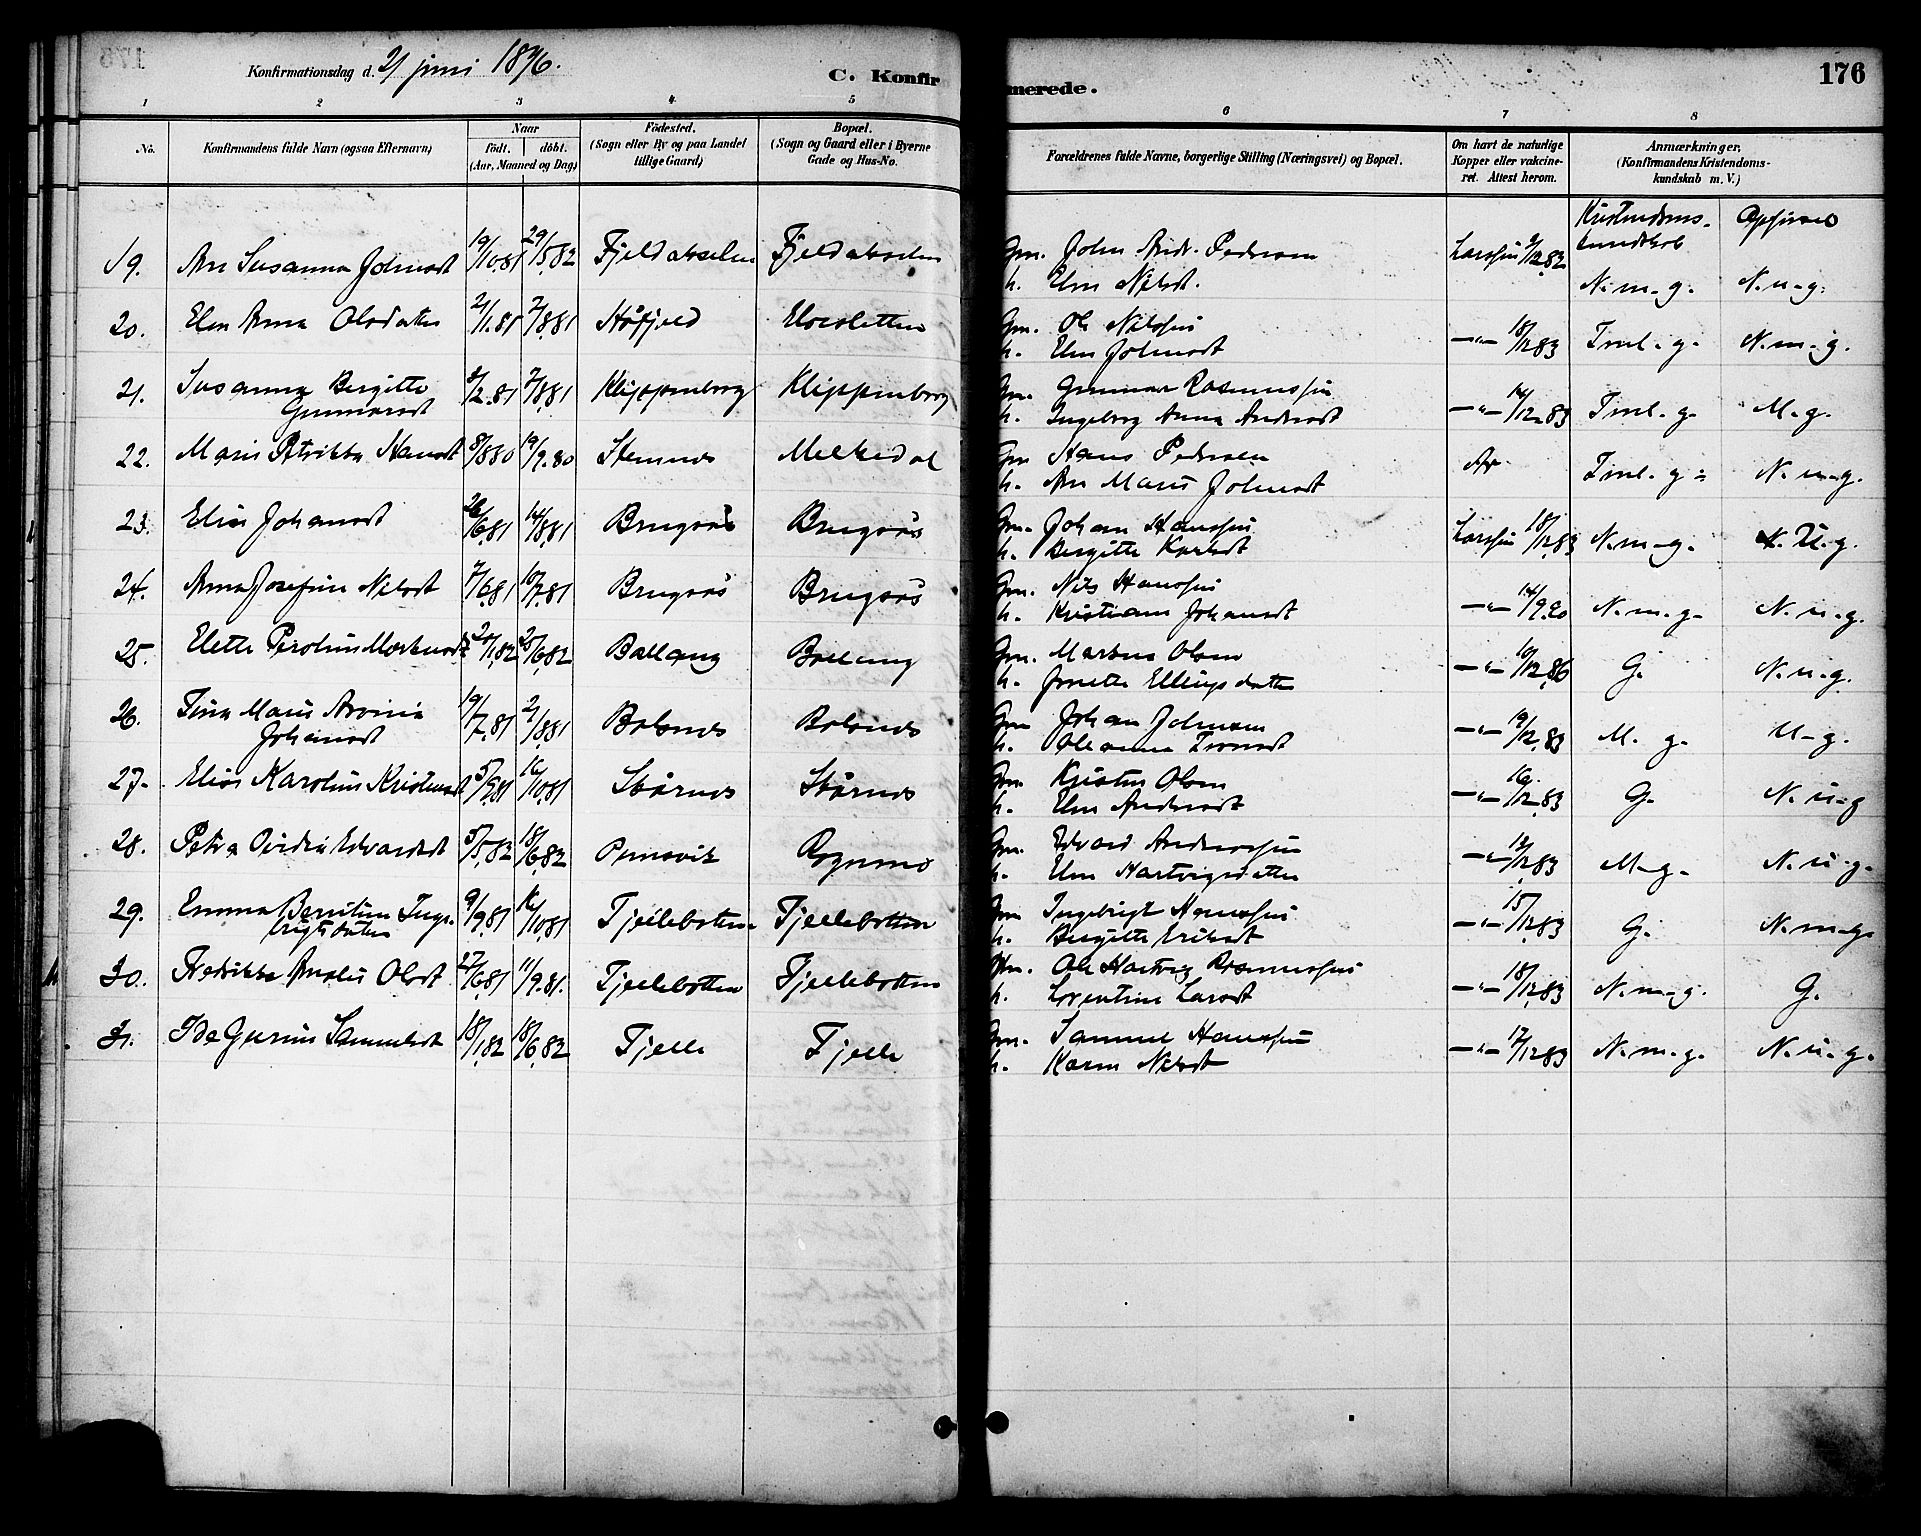 Konfirmationsdag d. 21 juni 1896.
C. Konfirmerede.
176
1 2 3 4 5 6 7 8
No.
Konfirmandens fulde Navn (ogsaa Efternavn)
Naar
født. døbt.
(Aar, Maaned og Dag)
Fødested.
(Sogn eller By og paa Landet
tillige Gaard)
Bopæl.
(Sogn og Gaard eller i Byerne
Gade og Hus-No.
Forældrenes fulde Navne, borgerlige Stilling (Næringsvei) og Bopæl.
Om havt de naturlige
Kopper eller vakcine-
ret. Attest herom.
Anmærkninger.
(Konfirmandens Kristendoms-
kundskab m. V.)
Kristendoms- Opførsel
kundskab
19. Ane Susanna Johnsdt 19/10.81 29/5.82 Fjeldakselen Fjeldakselen Gm. John Andr. Pedersen Larssen 9/12.82
h. Elen Nilsdt. N. m. g. N. u. g.
20. Elen Anna Olsdatter 21/1.81 7/8.81 Håfjeld Elvesletten Gm. Ole Nilssen
h. Elen Johnsdt —"— 18/12.83 Tml. g. N. m. g.
21. Susanna Bergitte 3/2.81 7/8.81 Klippenborg Klippenborg Gm. Gunnar Rasmussen
Gunnarsdt h. Ingeborg Anna Andersdt —"— 14/12.83 Tml. g. M. g.
22. Marie Petrikka Hansdt 8/8.80 19/9.80 Stemnes Melkedal Gm Hans Pedersen Ar Tml. g. N. m. g.
h. Ane Marie Johnsdt
23. Elise Johansdt 26/6.81 14/8.81 Brugsås Brugsås Gm. Johan Hanssen Larssen 18/12.83 N. m. g. N. U. g.
h. Bergitte Karlsdt
24. Anna Josefine Nilsdt 7/6.81 10/7.81 Brugsås Brugsås Gm. Nils Hanssen
h. Kristiane Johansdt —"— 14/9.90 N. m. g. N. u. g.
25. Elette Peroline Markusdt 20/1.82 25/6.82 Ballang Ballang Gm. Markus Olsen
h. Jonette Ellingsdatter —"— 10/12.86 G. N. u. g.
26. Tina Marie Aronia 19/7.81 21/8.81 Bolsnes Bolsnes Gm Johan Johnsen —"— 19/12.83 M. g. M. g.
Johansdt h. Oleanna Tronsdt
27. Elise Karoline Kristensdt 5/9.81 16/10.81 Skårnes Skårnes Gm Kristen Olsen
h. Elen Andersdt —"— 16/12.83 G. N. u. g
28. Petra Ovidia Edvardsdt 5/5.82 18/6.82 Pumsvik Rognmo Gm. Edvard Anderssen
h. Elen Hartvigsdatter —"— 12/12.83 M. g. N. u. g.
29. Emma Berntine Inge- 9/9.81 16/10.81 Fjellebotten Fjellebotten Gm Ingebrigt Hanssen
brigtsdatter h. Bergitte Eriksdt —"— 15/12.83 G. N. m. g.
30. Fredrikke Amalie Olsdt 27/6.81 11/9.81. Fjellebotten Fjellebotten Gm. Ole Hartvig Rasmussen
h. Lorentine Larsdt —"— 18/12.83 N. m. g. G.
31. Ida Gurine Samuelsdt 18/1.82 18/6.82 Fjelle Fjelle Gm. Samuel Hanssen
h. Karen Nilsdt —"— 17/12.83 N. m. g. N. u. g.